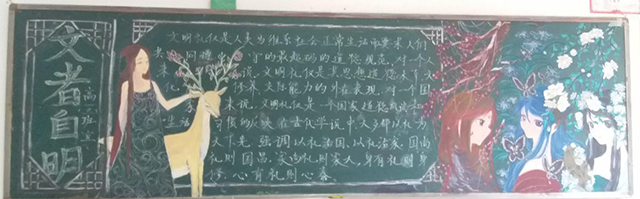 文者自明
高
班
宣
文明礼仪是人类为维系社会正常生活而要求人们
共同遵守的最起码的道德规范,对一个人
来说,文明礼仪是其思想道德
修养 交际能力的外在表现,对一个国
来说,文明礼仪是一个国家道德
生活习惯的反映 在古代学说中大多都以礼为
天下先 强调以礼治国,以礼治家,国尚
礼则国昌,家尚礼则家大,身有礼则身
修,心有礼则心泰